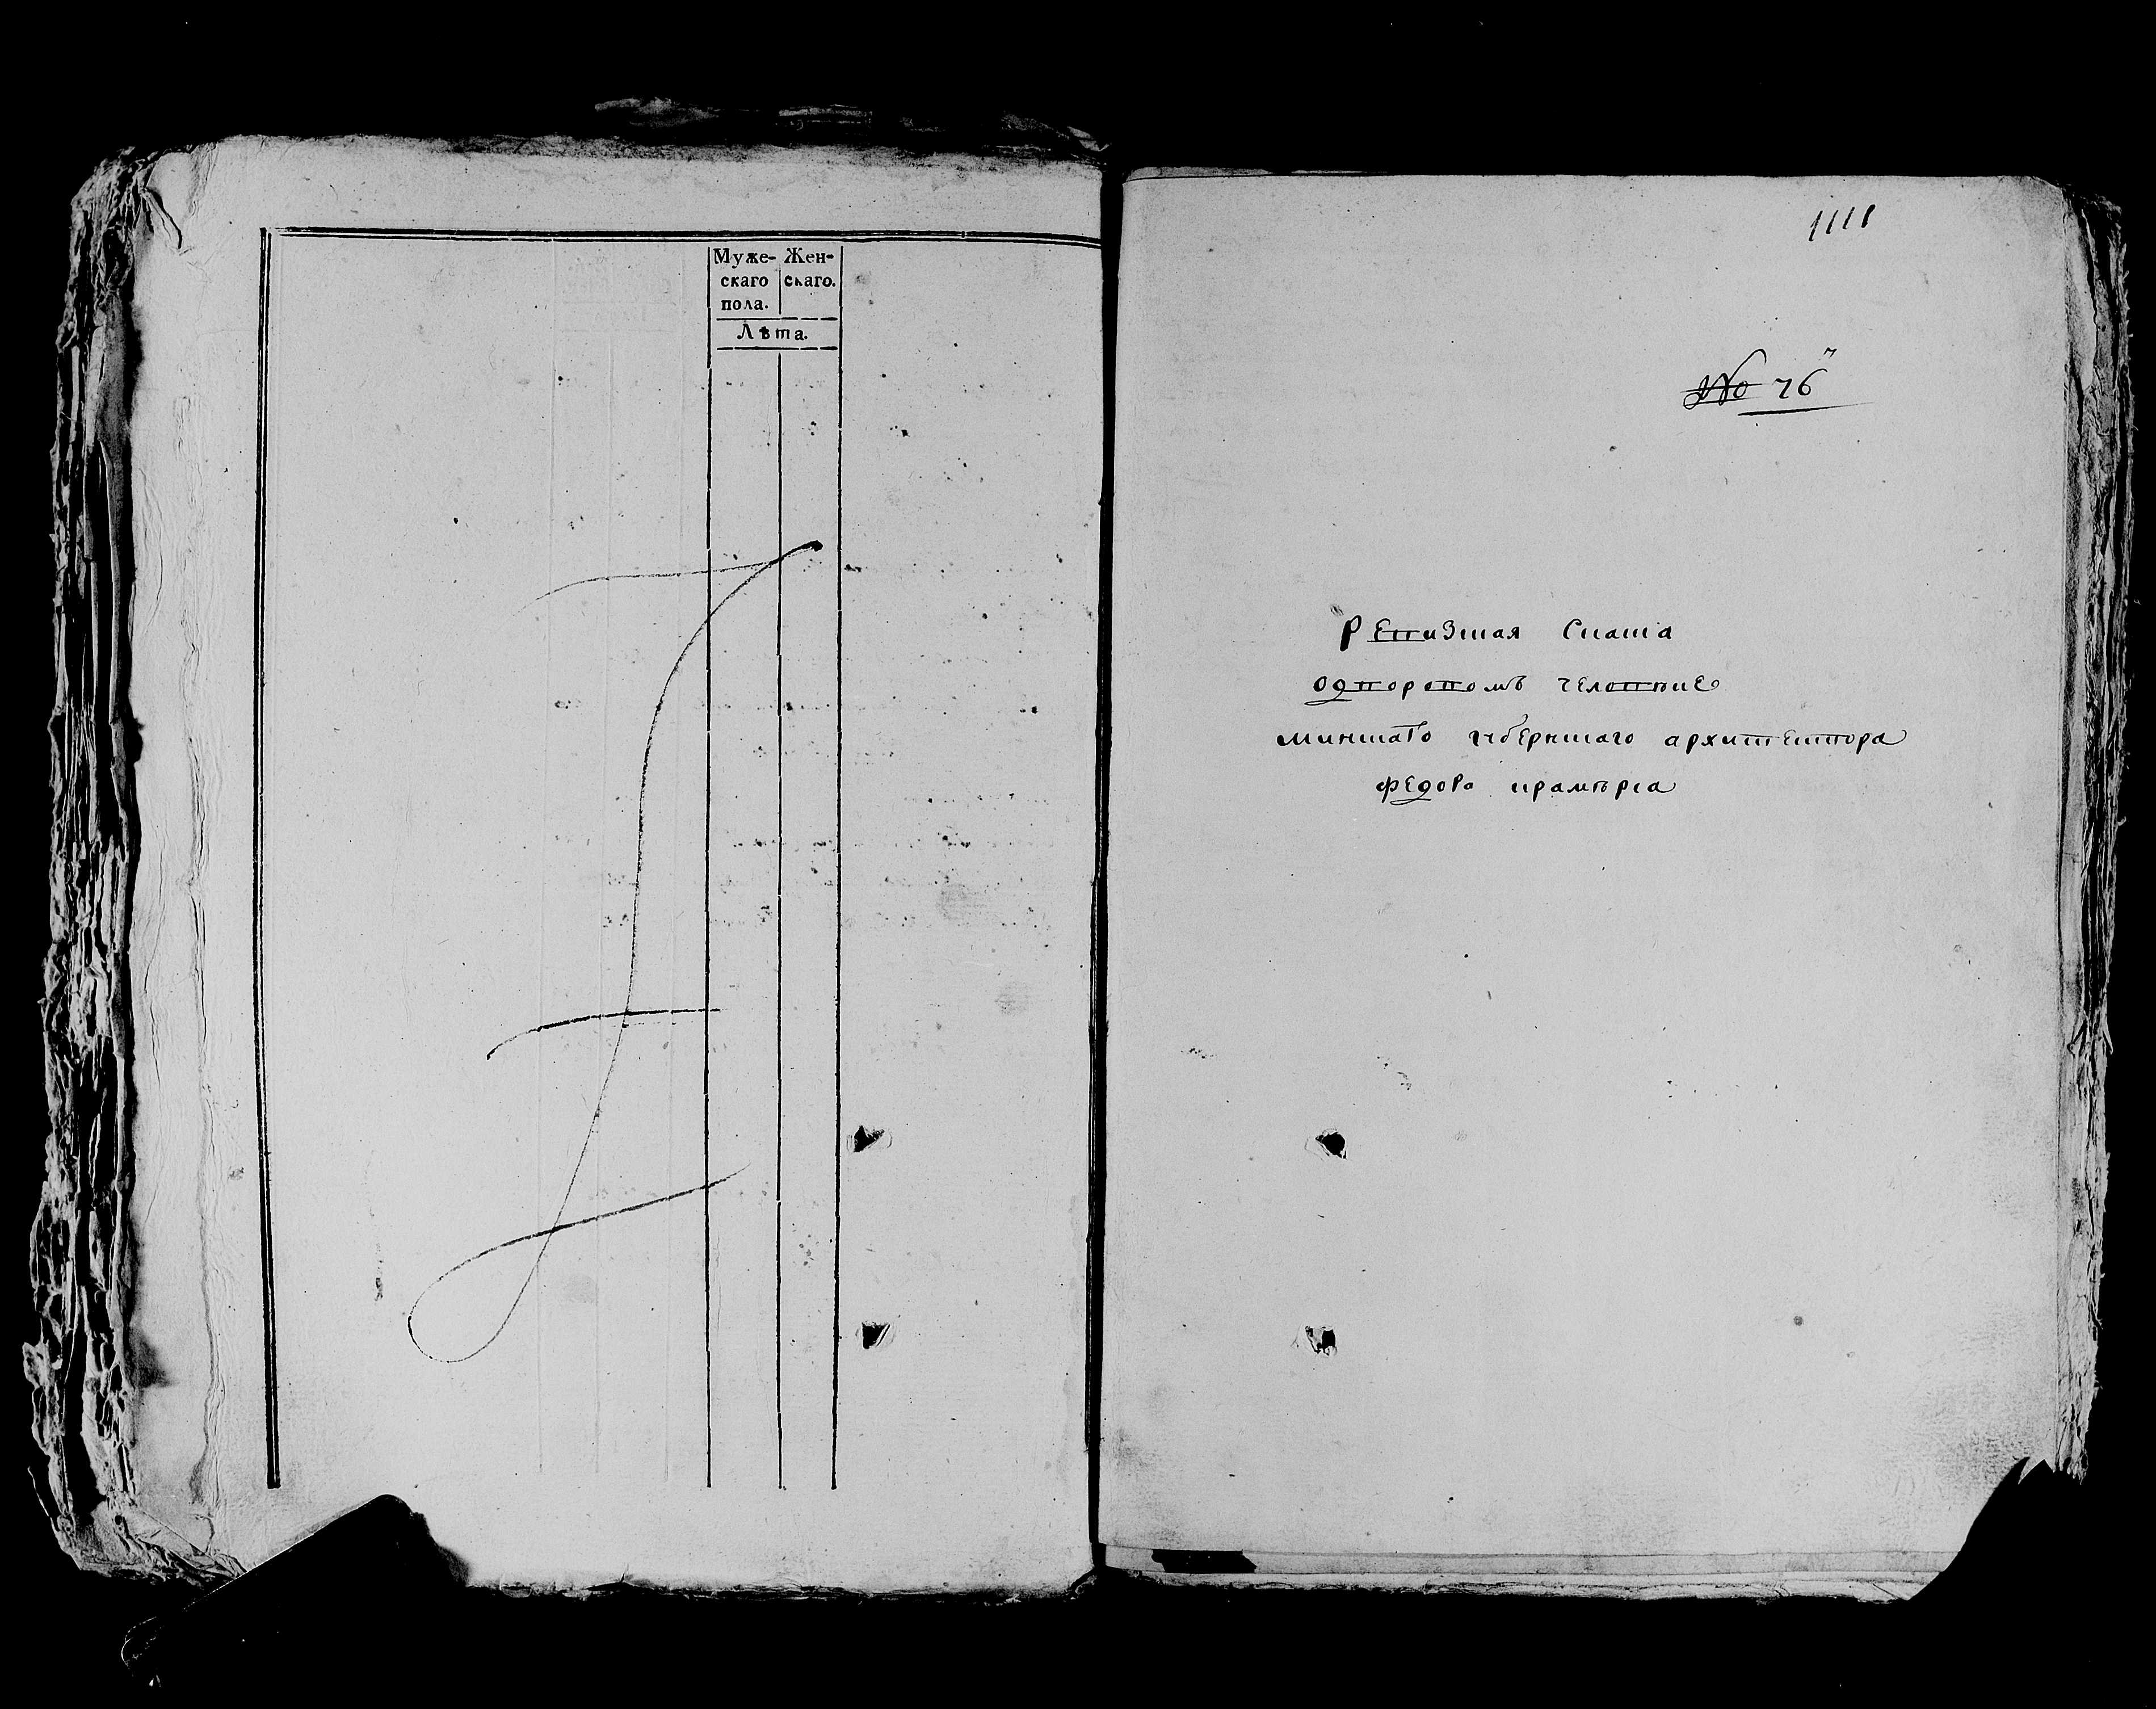 Муже-
скаго
пола.
Жен-
скаго.
Лѣта.
1111
№ 76
Ревизская Скаска
одворовомъ человѣке
минскаго губернскаго архитектора
Федора крамѣра